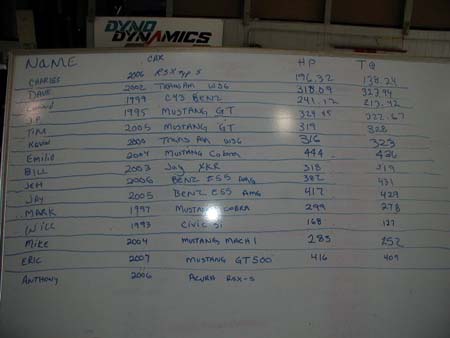 DYNO
DYNAMICS
NAME CAR HP TQ
CHARLES 2006 RSX TYP S 196.32 138.24
DAVE 2002 TRANSAM WS6 318.09 323.94
1999 C43 BENZ 241.12 213.42
J.P. 1995 MUSTANG GT
TIM 2005 MUSTANG GT 319 328
KEVIN TRANS AM WS6 316 323
EMILIO 2004 MUSTANG COBRA 444 426
BILL 2003 JAG XKR 318 319
JEH 2006 BENZ E55 AMG 382 431
JAY 2005 BENZ E55 AMG 417 429
MARK 1997 MUSTANG COBRA 299 278
WILL 1993 CIVIC SI 168 127
MIKE 2004 MUSTANG MACH 1 285 252
ERIC 2007 MUSTANG GT500 416 409
ANTHONY 2006 ACURA RSX-S